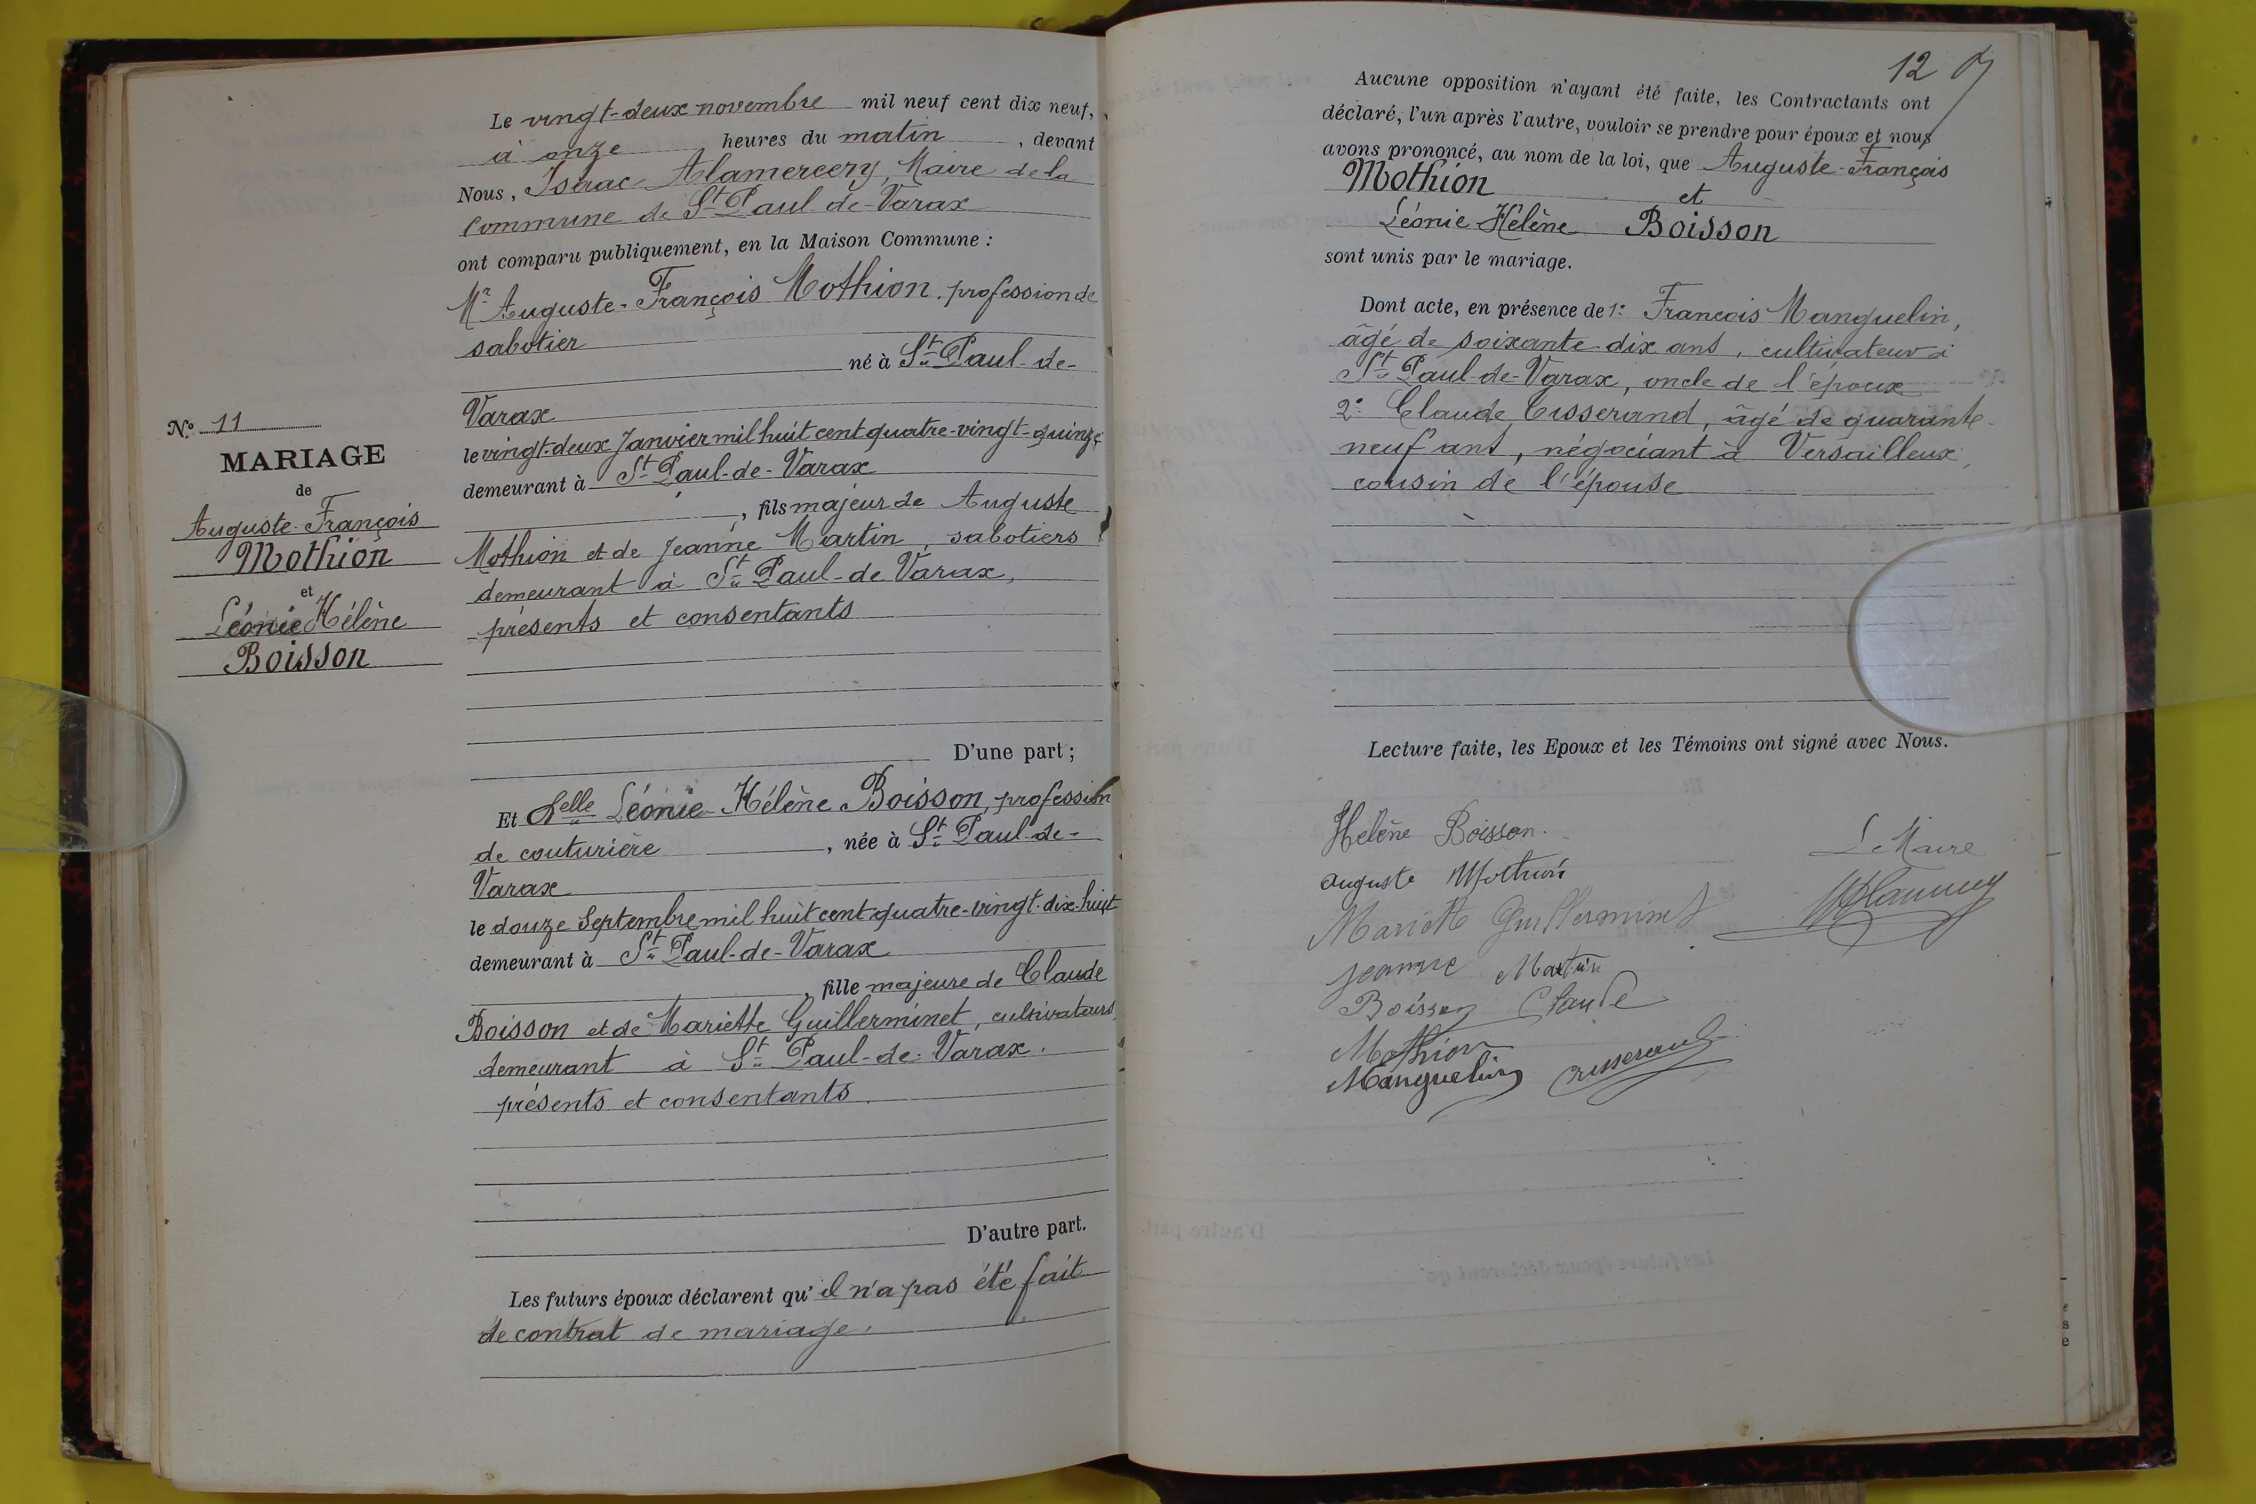 N.º 11
MARIAGE
de
Auguste-François
Mothion
et
Léonie Hélène
Boisson
Le vingt-deux novembre mil neuf cent dix neuf,
à onze heures du matin, devant
Nous, Isaac Alamercery, Maire de la
Commune de St Paul-de-Varax
ont comparu publiquement, en la Maison Commune :
Mr Auguste-François Mothion, profession de
sabotier
né à St Paul-de-
Varax
le vingt-deux Janvier mil huit cent quatre-vingt-quinze
demeurant à St Paul-de-Varax
, fils majeur de Auguste
Mothion et de Jeanne Martin, sabotiers
demeurant à St Paul-de Varax,
présents et consentants
D'une part ;
Et Delle Léonie-Hélène Boisson, profession
de couturière, née à St Paul-de-
Varax
le douze Septembre mil huit cent quatre-vingt-dix-huit
demeurant à St Paul-de-Varax
, fille majeure de Claude
Boisson et de Mariette Guillerminet, cultivateurs,
demeurant à St Paul-de-Varax.
présents et consentants.
D'autre part.
Les futurs époux déclarent qu'il n'a pas été fait
de contrat de mariage.
12
Aucune opposition n'ayant été faite, les Contractants ont
déclaré, l'un après l'autre, vouloir se prendre pour époux et nous
avons prononcé, au nom de la loi, que Auguste-François
Mothion et
Léonie Hélène Boisson
sont unis par le mariage.
Dont acte, en présence de 1º François Manguelin,
âgé de soixante-dix ans, cultivateur à
St Paul-de-Varax, oncle de l'époux
2º Claude Tisserand, âgé de quarante-
neuf ans, négociant à Versailleux,
cousin de l'épouse
Lecture faite, les Epoux et les Témoins ont signé avec Nous.
Helène Boisson.
Auguste Mothion
Le Maire
Mariette Guillerminet
Jeanne Martin
Boisson Claude
Mothion
Manguelin